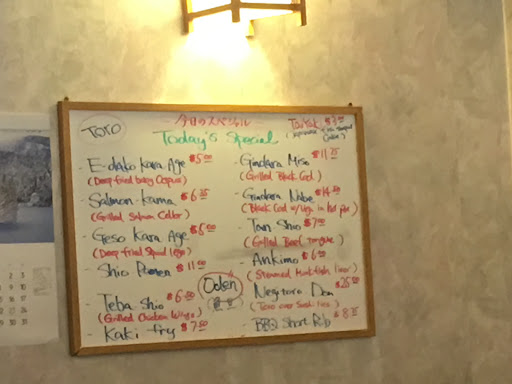 今日のスペシャル
Toro
Today's Special
Taiyaki $3.50
(Japanese Fish Shaped Cake)
- E-dako Kara Age $5.00
(Deep-fried baby Octpus)
- Salmon-Kama $6.25
(Grilled Salmon Coller)
- Geso Kara Age $6.00
(Deep fried Squid legs)
- Shio Ramen $11.00
- Teba Shio $6.00
(Grilled Chicken Wings)
- Kaki Fry $7.50
Oden
- Gindara Miso $11.25
(Grilled Black Cod)
- Gindara Nabe $14.50
(Black Cod w/Vege in hot pot)
- Tan Shio $7.00
(Grilled Beef tongue)
- Ankimo $6.00
(Steamed Monkfish liver)
- Negitoro Don $25.00
(Toro over Sushi rice)
- BBQ Short Rib $8.25